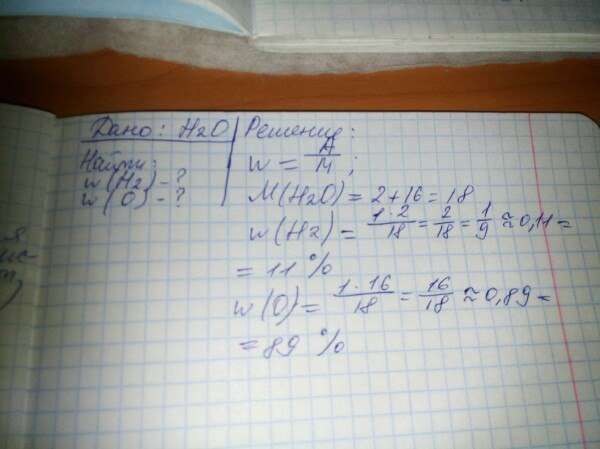 Дано: H2O
Найти:
w (H2) - ?
w (O) - ?
Решение:
w = A/M ;
M(H2O) = 2+16 = 18
w(H2) = 1·2/18 = 2/18 = 1/9 ≈ 0,11 =
= 11 %
w (O) = 1·16/18 = 16/18 ≈ 0,89 =
= 89 %